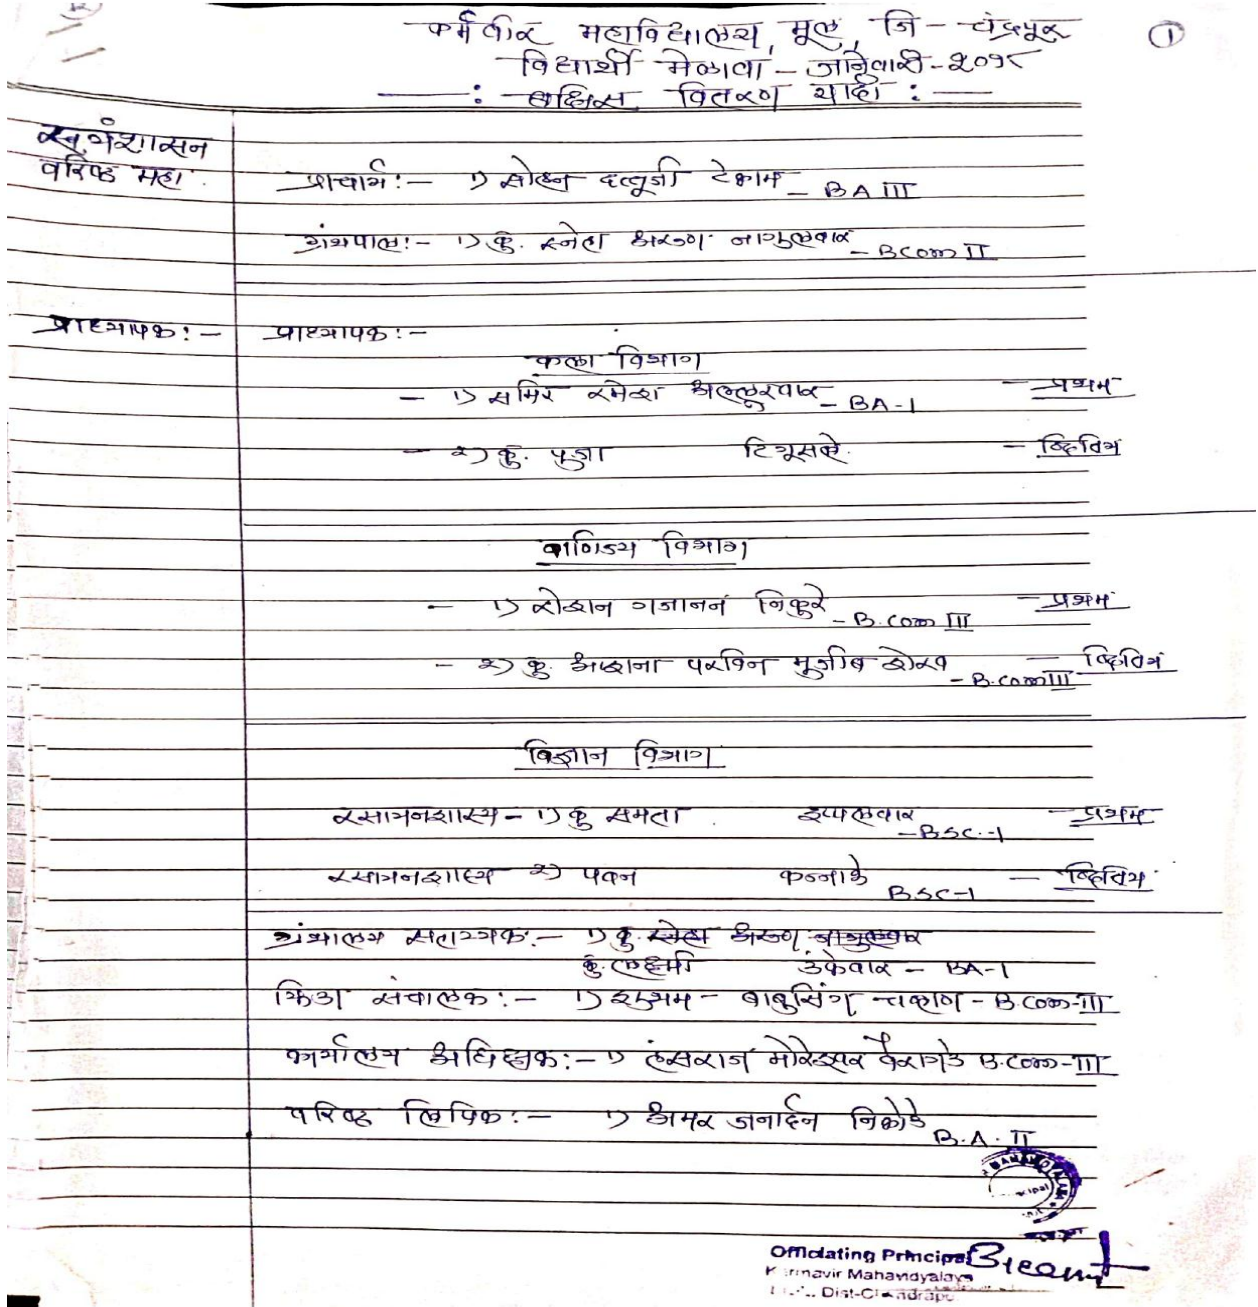 ①
कर्मवीर महाविद्यालय, मूल, जि - चंद्रपूर
विद्यार्थी मेळावा - जानेवारी - २०१८
: बक्षिस वितरण यादी :
स्वयंशासन
वरिष्ठ महा.
प्राचार्य :- १) सोहन दत्तूजी टेकाम - BA III
ग्रंथपाल :- १) कु. स्नेहा अरुण नागुलवार - BCom II
प्राध्यापक :- प्राध्यापक :-
कला विभाग
- १) समिर रमेश अल्लूरवार - BA-I - प्रथम
- २) कु. पुजा टिगूसले - व्दितिय
वाणिज्य विभाग
- १) रोशन गजानन निकुरे - B.com III - प्रथम
- २) कु. अफसाना परविन मूजीब शेख - B.com III - व्दितिय
विज्ञान विभाग
रसायनशास्त्र - १) कु समता इप्पलवार - BSC.-1 - प्रथम
रसायनशास्त्र २) पवन कन्नाके BSC-1 - व्दितिय
ग्रंथालय सहाय्यक :- १) कु. स्नेहा अरुण नागुलवार
कु. लक्ष्मी उंकेवार - BA-I
क्रिडा संचालक :- १) शुभम - बाबुसिंग चव्हाण - B.Com-III
कार्यालय अधिक्षक :- १) हंसराज मोरेश्वर वैरागडे B.Com-III
वरिष्ठ लिपिक :- १) अमर जनार्दन निकोडे B.A. II
Officiating Principal
Karmavir Mahavidyalaya
Dist-Chandrapur